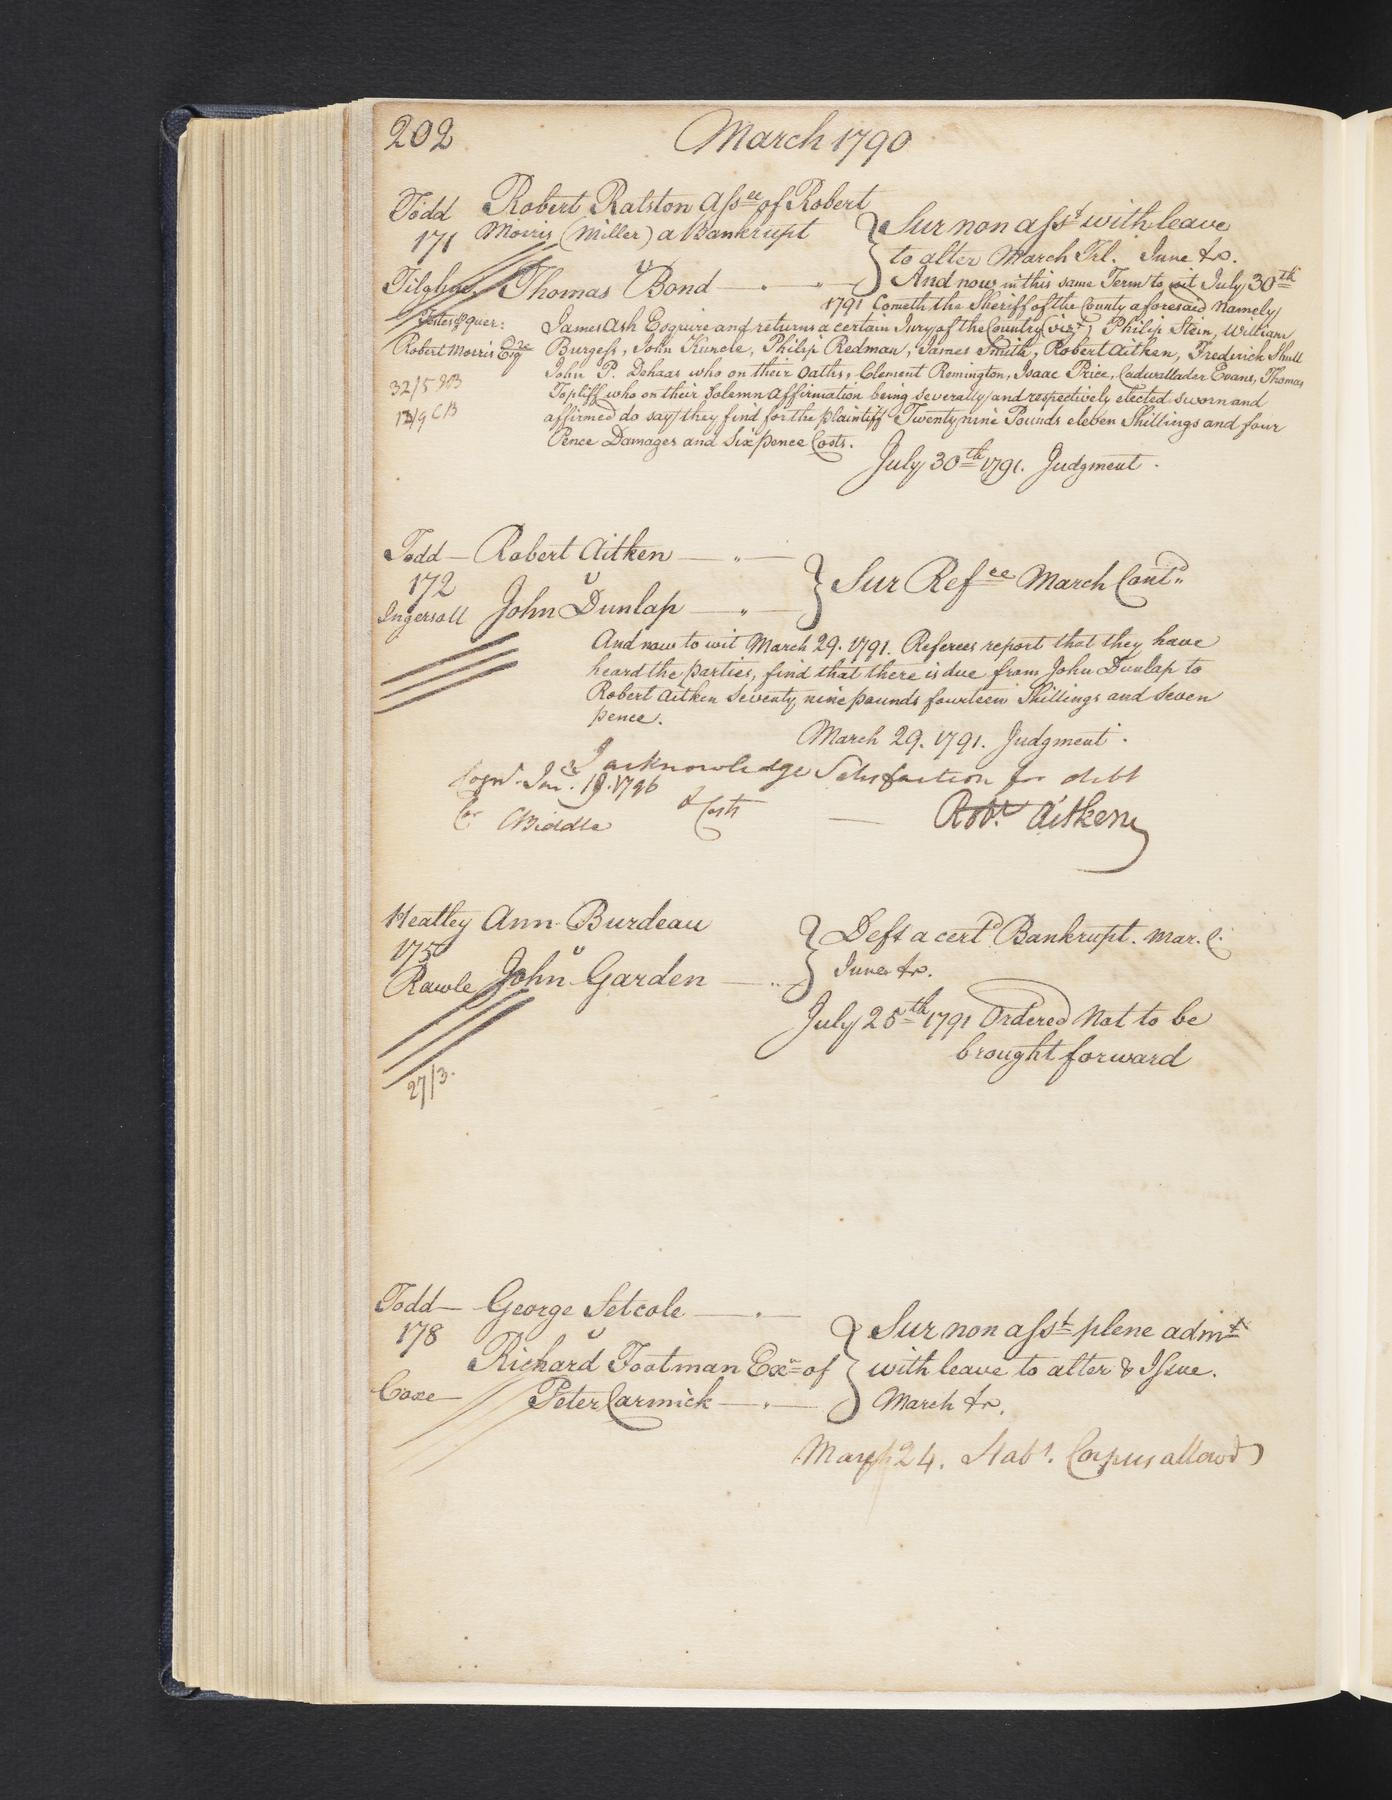 202 March 1790
Todd Robert Ralston Assee of Robert
171 Morris (Miller) a Bankrupt
v
Tilghm. Thomas Bond
Sur non asst with leave
to alter March Trl. June &c.
And now in this same Term to wit July 30th
1791 Cometh the Sheriff of the County aforesaid Namely
James Ash Esquire and returns a certain Jury of the Country Vizt, Philip Stein, William
Robert Morris Esqre Burgess, John Kuncle, Philip Redman, James Smith, Robert Aitken, Frederick Shull
John P. Dehaas who on their oaths, Clement Remington, Isaac Price, Cadwallader Evans, Thomas
32/5
Topliff who on their Solemn Affirmation being severally and respectively elected sworn and
12/9 CB
affirmed do say they find for the plaintiff Twenty nine Pounds eleben Shillings and four
Pence Damages and Six pence Costs.
July 30th 1791. Judgment.
Todd Robert Aitken
172 v
Ingersoll John Dunlap
Sur Refce March Contd
And now to wit March 29. 1791. Referees report that they have
heard the parties, find that there is due from John Dunlap to
Robert Aitken Seventy nine pounds fourteen Shillings and Seven
pence.
March 29. 1791. Judgment.
I acknowledge Satisfaction for debt
Jan. 19. 1796
& Costs
Cor CBiddle
Robt Aitken
Heatley Ann Burdeau
175 v
Rawle John Garden
Deft a certd Bankrupt. Mar. C.
June &c.
July 25th 1791 Ordered Not to be
brought forward
27/3.
Todd George Setcole
178 v
Richard Footman Exr of
Coxe Peter Carmick
Sur non asst plene admt
with leave to alter & Issue.
March &c.
March 24. Habs. Corpus allowd